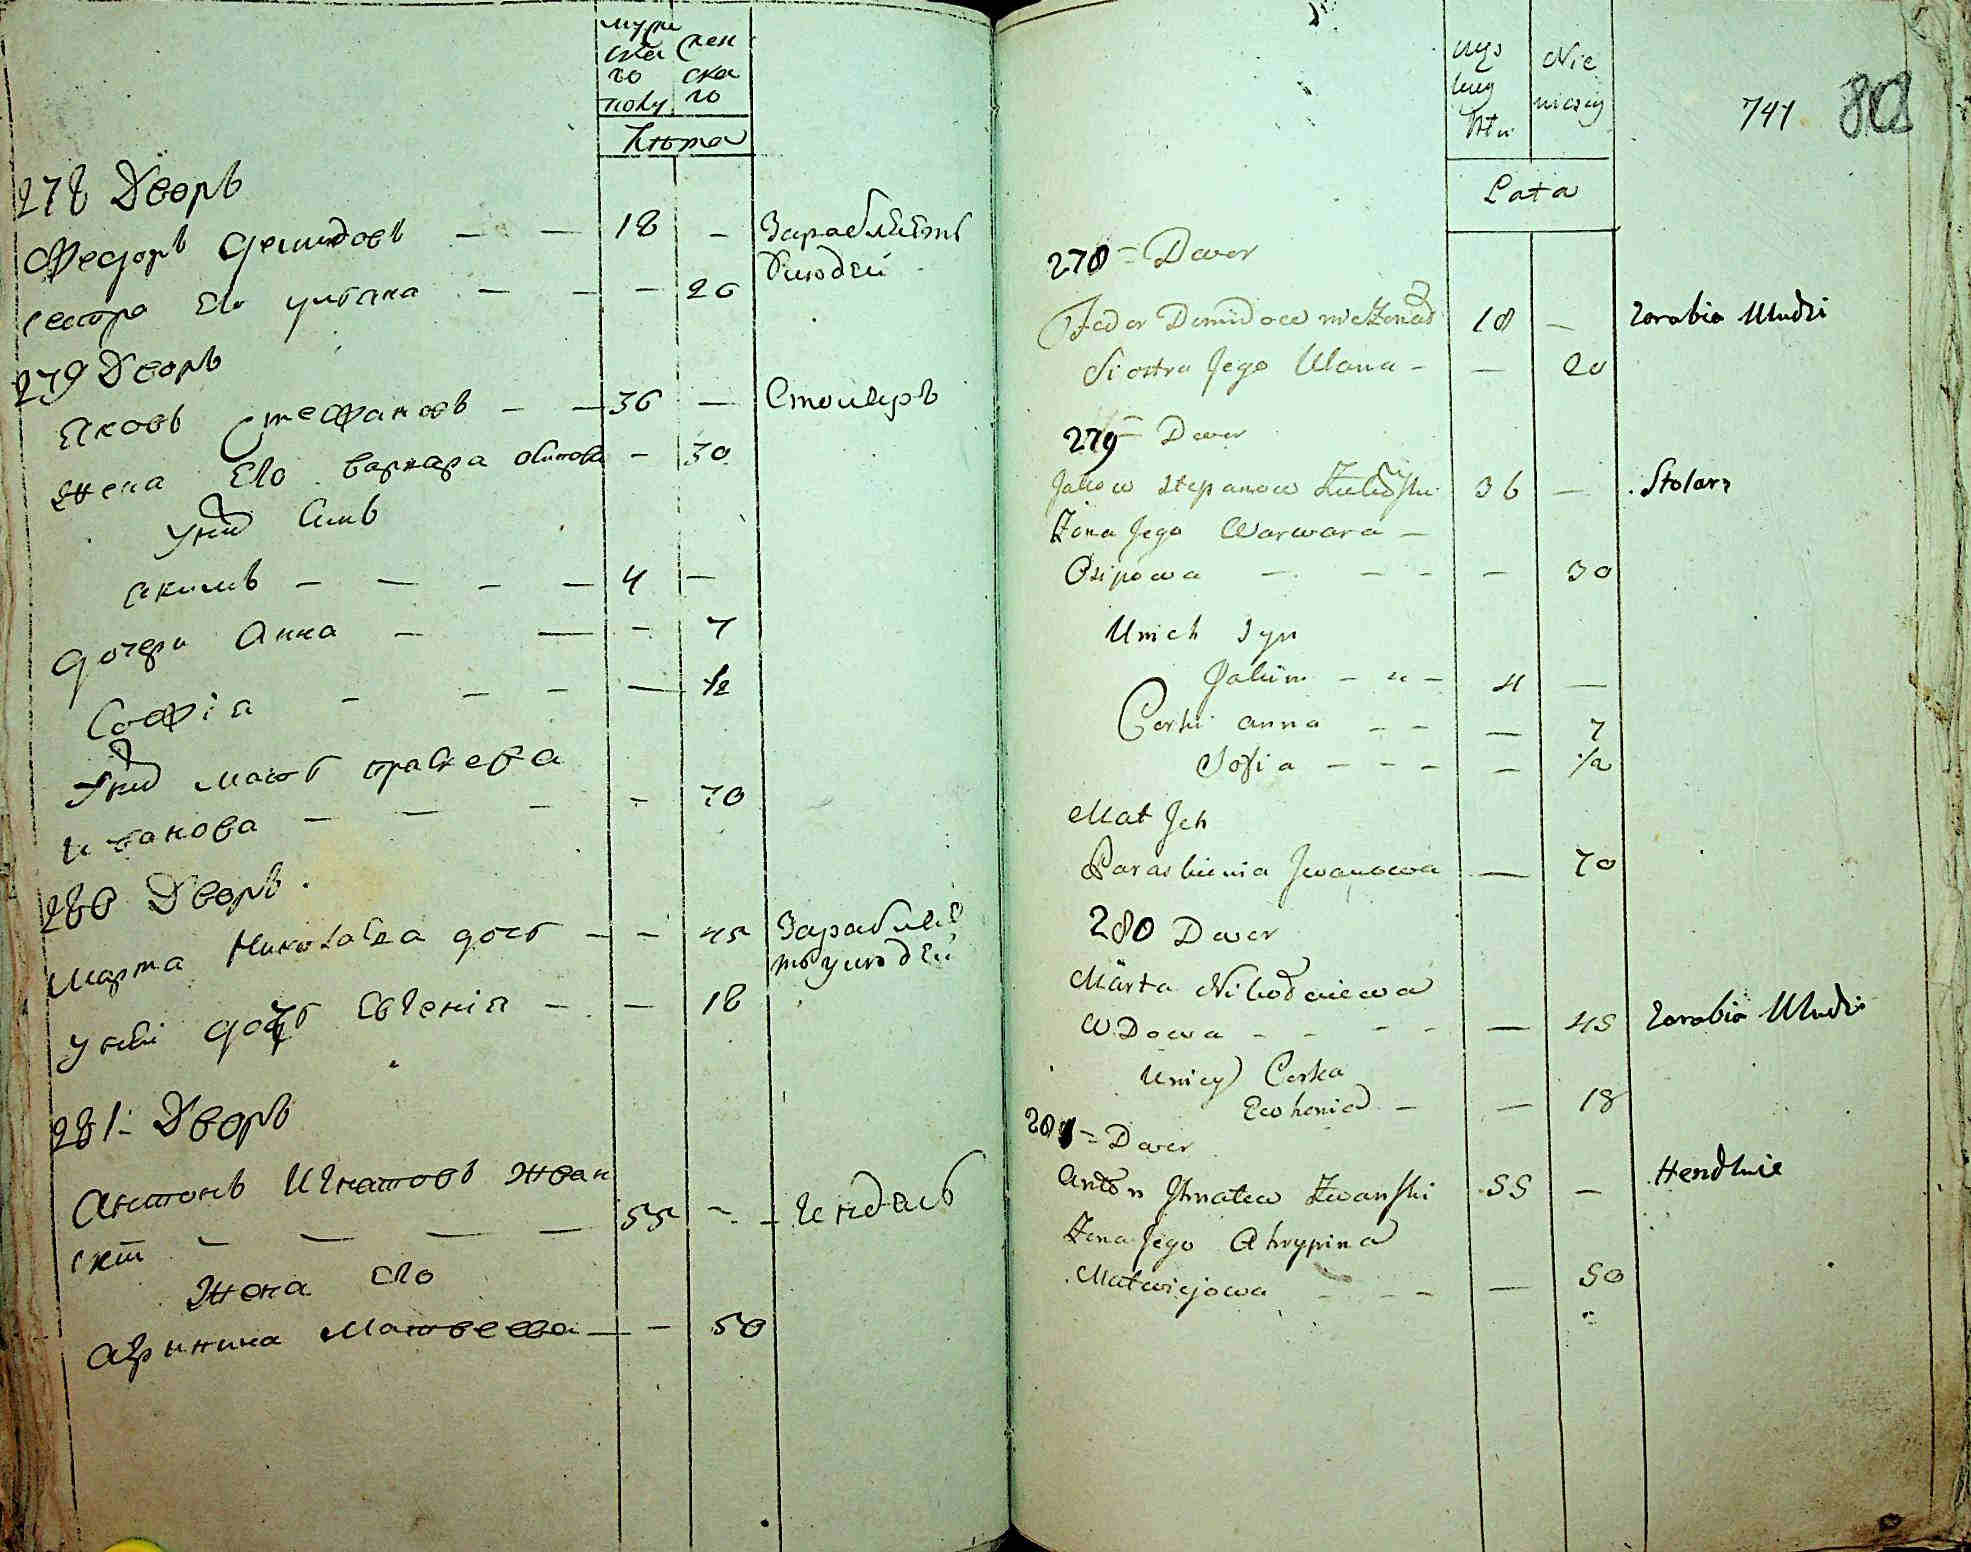 мужска го полу
женска го
Лѣта
278 Дворъ
Федоръ Демидовъ — — 18 — Зарабляетъ
улюдей
сестра Его улѣяна — — — 20
279 Дворъ
Яковъ Стефановъ — — 36 — Столяръ
Жена Его варвара осипова — 30
У них Сынъ
Акимъ — — — — 4 —
дочери Анна — — — 7
Софія — — — — 1/2
У них мать праскева
Иванова — — — — 70
280 Дворъ
Марта Николаева дочь — — 45 Зарабляе
тъ улюдей
У неі дочь Евгенія — — 18
281 Дворъ
Антонъ Игнатовъ Жван
скій — — — — 55 — Гендель
Жена Его
Агрипина Матвеева — — 50
Męs kiey Płci
Nie wiesciey
741 802
Lata
278 = Dwor
Fedor Demidow nieżonad 18 — Zarabia Uludzi
Siostra Jego Ulana — — 20
279 = Dwor
Jakow Stepanow 36 — Stolarz
Żona Jego Warwara —
Osipowa — — — — 30
Unich Syn
Jakim — — — 4 —
Corki anna — — — 7
Sofia — — — — 1/2
Mat Jch
Paraskiewia Jwanowa — 70
280 Dwor
Marta Nikołaiewa
Wdowa — — — — — 45 Zarabia Uludzi
Uniey Corka
Ewhenia — — 18
281 = Dwor
Anton Jhnatew Żwanski 55 — Hendluie
Żona Jego Ahrypina
Matwiejowa — — — — 50